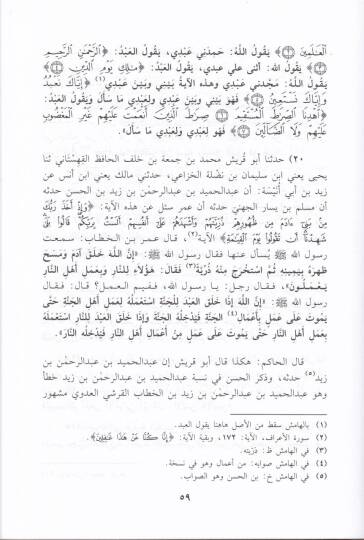 ٱلۡعَـٰلَمِينَ ﴾ يَقُولُ اللَّهُ: حَمِدَنِي عَبْدِي، يَقُولُ العَبْدُ: ﴿ٱلرَّحۡمَـٰنِ ٱلرَّحِيمِ
﴾ يَقُولُ الله: أثنى علي عبدي، يَقُولُ العَبْدُ: ﴿مَـٰلِكِ يَوۡمِ ٱلدِّينِ
﴾ يَقُولُ الله: مَجَّدَني عبدي وهذه الآيةُ بَيْنِي وبَينَ عبدي(١) ﴿إِيَّاكَ نَعۡبُدُ
وَإِيَّاكَ نَسۡتَعِينُ ﴾ فَهُوَ بَيْنِي وبَينَ عَبْدِي ولِعَبْدِي مَا سَأَلَ وَيَقُولُ العَبْدُ:
﴿ٱهۡدِنَا ٱلصِّرَٰطَ ٱلۡمُسۡتَقِيمَ صِرَٰطَ ٱلَّذِينَ أَنۡعَمۡتَ عَلَيۡهِمۡ غَيۡرِ ٱلۡمَغۡضُوبِ
عَلَيۡهِمۡ وَلَا ٱلضَّآلِّينَ ﴾ فَهُوَ لِعَبدِي ولِعَبْدي مَا سَأَلَ».
٢٠) حدثنا أبو قُريش محمد بن جمعة بن خلف الحافظ القِهِسْتاني ثنا
يحيى يعني ابن سليمان بن نضلة الخزاعي، حدثني مالك يعني ابن أنس عن
زيد بن أبي أُنَيْسَة: أن عبدالحميد بن عبدالرحمٰن بن زيد بن الحسن حدثه
أن مسلم بن يسار الجهنيّ حدثه أن عمر سئل عن هذه الآية: ﴿وَإِذۡ أَخَذَ رَبُّكَ
مِنۢ بَنِيٓ ءَادَمَ مِن ظُهُورِهِمۡ ذُرِّيَّتَهُمۡ وَأَشۡهَدَهُمۡ عَلَىٰٓ أَنفُسِهِمۡ أَلَسۡتُ بِرَبِّكُمۡۖ قَالُواْ بَلَىٰ
شَهِدۡنَآۚ أَن تَقُولُواْ يَوۡمَ ٱلۡقِيَـٰمَةِ﴾ الآية(٢)، قال عمر بن الخطاب: سمعت
رسول الله ﷺ يُسأل عنها فقال رسول الله ﷺ: «إنَّ اللَّهَ خَلَقَ آدَمَ وَمَسَحَ
ظَهرَهُ بِيَمِينِهِ ثُمَّ اسْتَخْرَجَ مِنْهُ ذُرِّيَّةً(٣) فَقَالَ: هؤُلاَءِ لِلنَّارِ وبِعَمَلِ أَهْلِ النَّارِ
يَعْمَلُونَ»، فقال رجل: يا رسول الله، ففيم العمل؟ قال: فقال
رسول الله ﷺ: «إنَّ اللَّهَ إذَا خَلَقَ العَبْدَ لِلْجَنَّةِ اسْتَعْمَلَهُ لِعَمَلِ أَهْلِ الجَنَّةِ حَتَّى
يَمُوتَ عَلَى عَمَلٍ بِأَعْمَالِ(٤) أَهْلِ الجَنَّةِ فَيُدْخِلَهُ الجَنَّةَ وَإذَا خَلَقَ العَبْدَ لِلنَّارِ اسْتَعْمَلَهُ
بِعَمَلِ أَهْلِ النَّارِ حَتَّى يَمُوتَ عَلَى عَمَلٍ مِنْ أَعْمَالِ أَهْلِ النَّارِ فَيُدْخِلَهُ النَّارَ».
قال الحاكم: هكذا قال أبو قريش إن عبدالحميد بن عبدالرحمٰن بن
زيد(٥) حدثه، وذكر الحسن في نسبة عبدالحميد بن عبدالرحمٰن بن زيد خطأ
وهو عبدالحميد بن عبدالرحمٰن بن زيد بن الخطاب القرشي العدوي مشهور
(١) بالهامش سقط من الأصل هاهنا يقول العبد.
(٢) سورة الأعراف، الآية: ١٧٢، وبقية الآية: ﴿إِنَّا كُنَّا عَنۡ هَـٰذَا غَـٰفِلِينَ﴾.
(٣) في الهامش ظ: ذرّيته.
(٤) في الهامش صوابه: من أعمال وهو في نسخة.
(٥) في الهامش خ: بن الحسن وهو الصواب.
٥٩